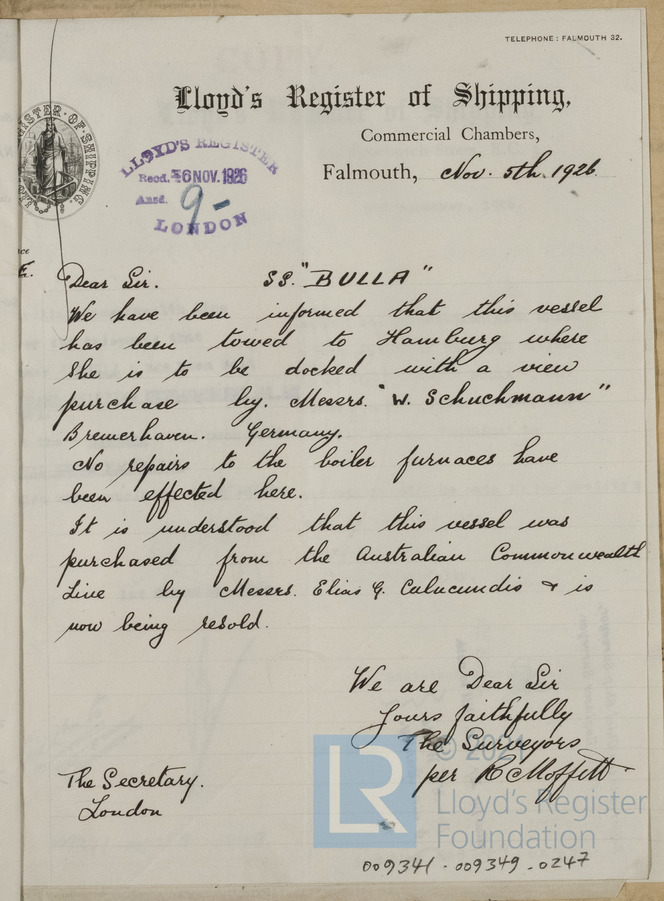 TELEPHONE: FALMOUTH 32.
Lloyd's Register of Shipping,
Commercial Chambers,
Falmouth, Nov. 5th. 1926
LLOYD'S REGISTER
Recd. 6 NOV. 1926
Ansd. 9-
LONDON
Dear Sir. SS. "BULLA"
We have been informed that this vessel
has been towed to Hamburg where
she is to be docked with a view
purchase by. Messrs. "W. Schuchmann"
Bremerhaven. Germany.
No repairs to the boiler furnaces have
been effected here.
It is understood that this vessel was
purchased from the Australian Commonwealth
Line by Messrs. Elias G. Culucundis & is
now being resold.
We are Dear Sir
Yours faithfully
The Surveyors
per R Moffett
The Secretary.
London
© 2021
LR
Lloyd's Register
Foundation
009341-009349-0247